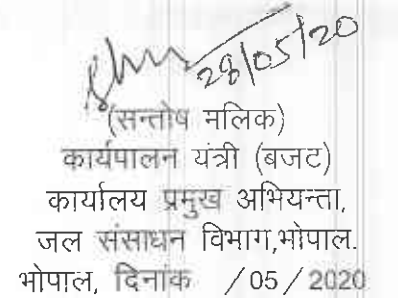 28/05/20
(सन्तोष मलिक)
कार्यपालन यंत्री (बजट)
कार्यालय प्रमुख अभियन्ता,
जल संसाधन विभाग,भोपाल.
भोपाल, दिनांक /05/2020